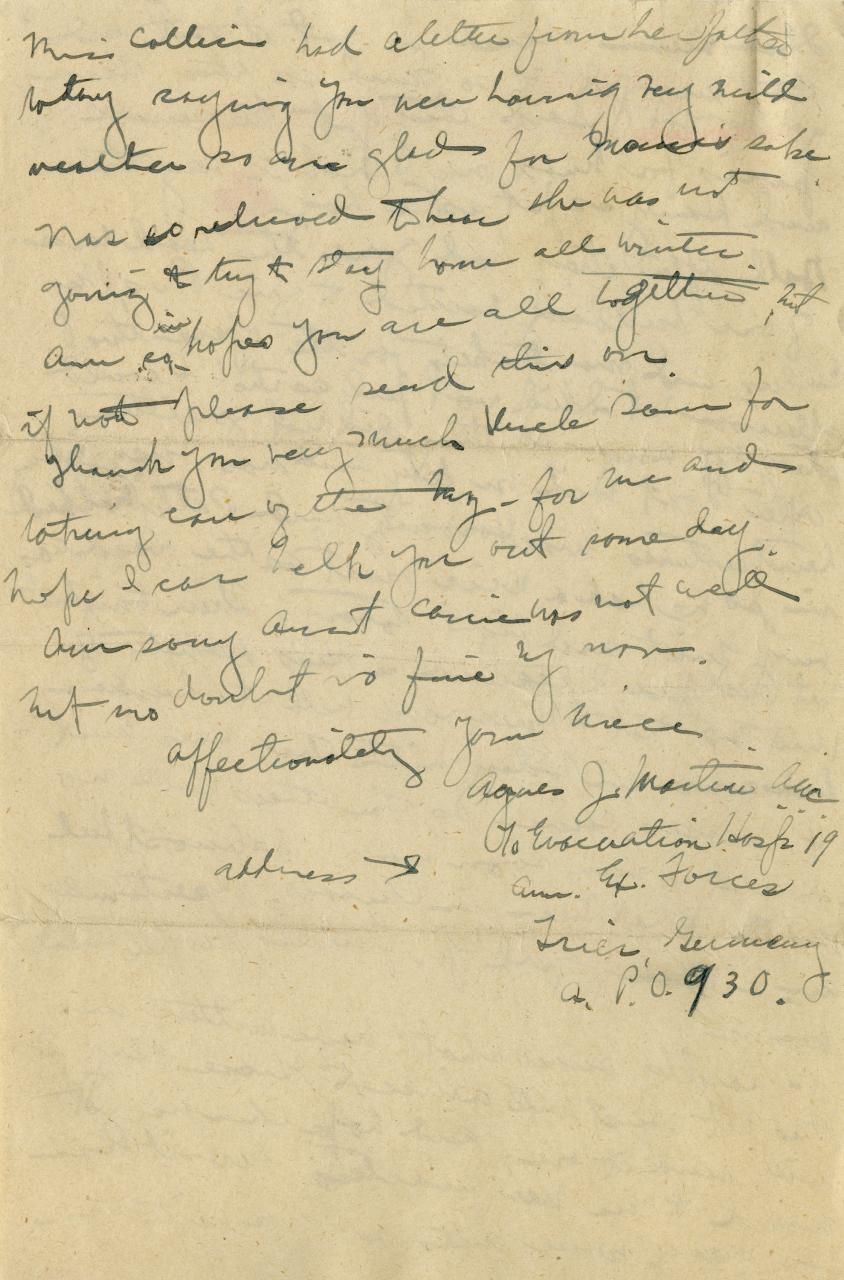 Miss Collins had a letter from her father
today saying you were having very mild
weather so am glad for Mama's sake.
Was so relieved to hear she was not
going to try to stay home all winter.
Am in hopes you are all together, but
if not please send this on.
Thank you very much Uncle Sam for
taking care of the for me and
hope I can help you out some day.
Am sorry Aunt Carrie was not well
but no doubt is fine by now.
Affectionately your niece
Agnes J. Martin
% Evacuation Hosp. 19
address →
Am. Ex. Forces
Trier, Germany
A. P. O. 930.